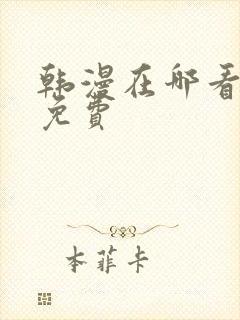 韩漫在哪看
免費
本菲卡